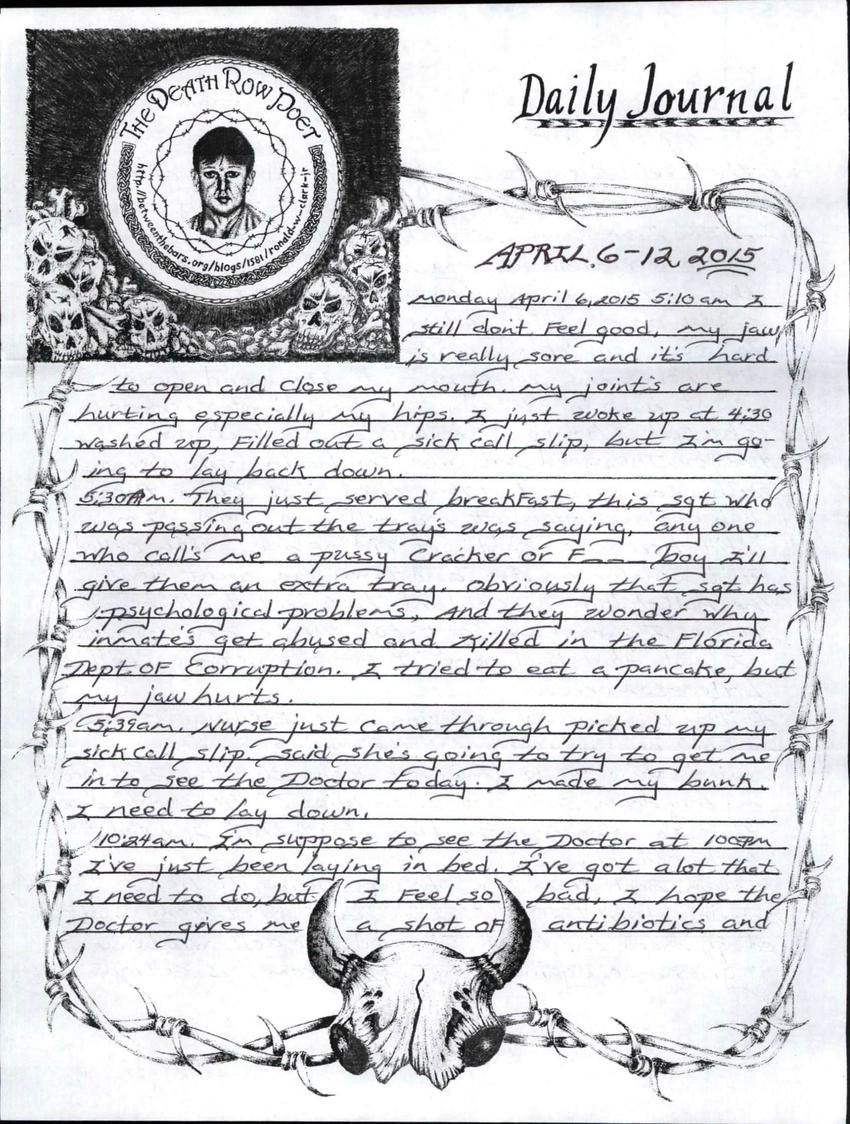 THE DEATH ROW POET
http://betweenthebars.org/blogs/1581/ronald-w-clark-jr
Daily Journal
APRIL. 6-12 2015
Monday April 6, 2015 5:10am I
still dont Feel good, my jaw
is really sore and its hard
to open and close my mouth. my joint's are
hurting especially my hips. I just woke up at 4:30
washed up, Filled out a sick call slip, but I'm go-
ing to lay back down.
5:30Am. They just served breakFast, this sgt who
was passing out the tray's was saying, any one
who call's me a pussy Cracker or F___ boy I'll
give them an extra tray. Obviously that sgt has
psychological problems, And they wonder why
inmate's get abused and Killed in the Florida
Dept OF Corruption. I tried to eat a pancake, but
my jaw hurts.
5:39am. Nurse just came through picked up my
sick call slip said she's going to try to get me
in to see the Doctor today. I made my bunk.
I need to lay down.
10:24am. I'm suppose to see the Doctor at 100pm
I've just been laying in bed. I've got alot that
I need to do, but I Feel so bad, I hope the
Doctor gives me a shot oF antibiotics and